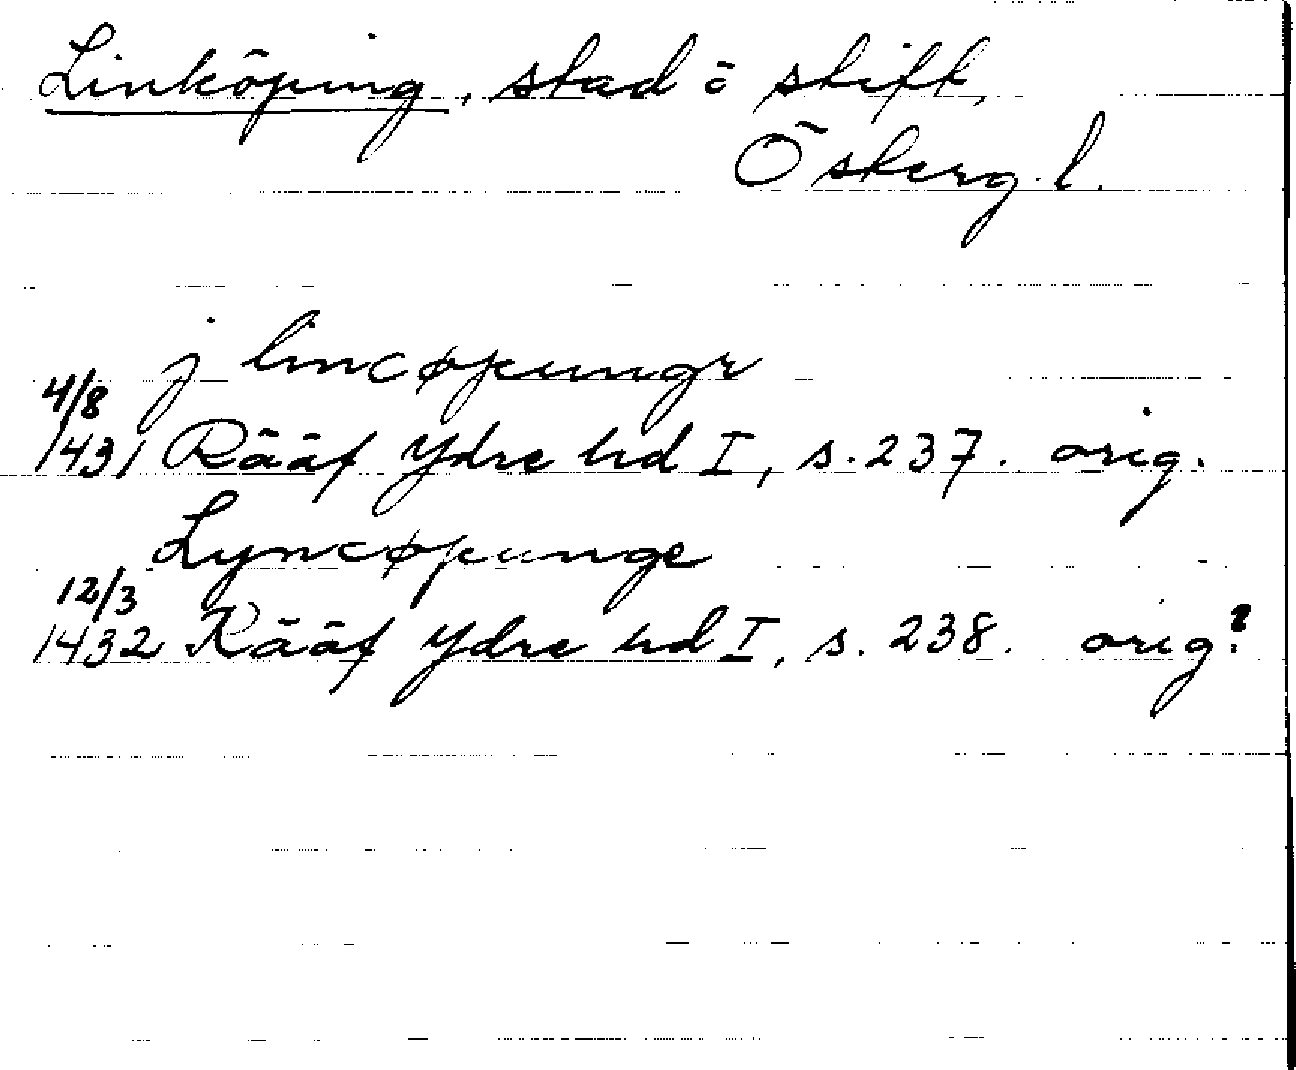 Linköping, stad o stift,
Österg. l.
j lincøpungr
4/8
1431 Rääf Ydre hd I, s. 237. orig.
Lyncøpunge
12/3
1432 Rääf Ydre hd I, s. 238. orig?